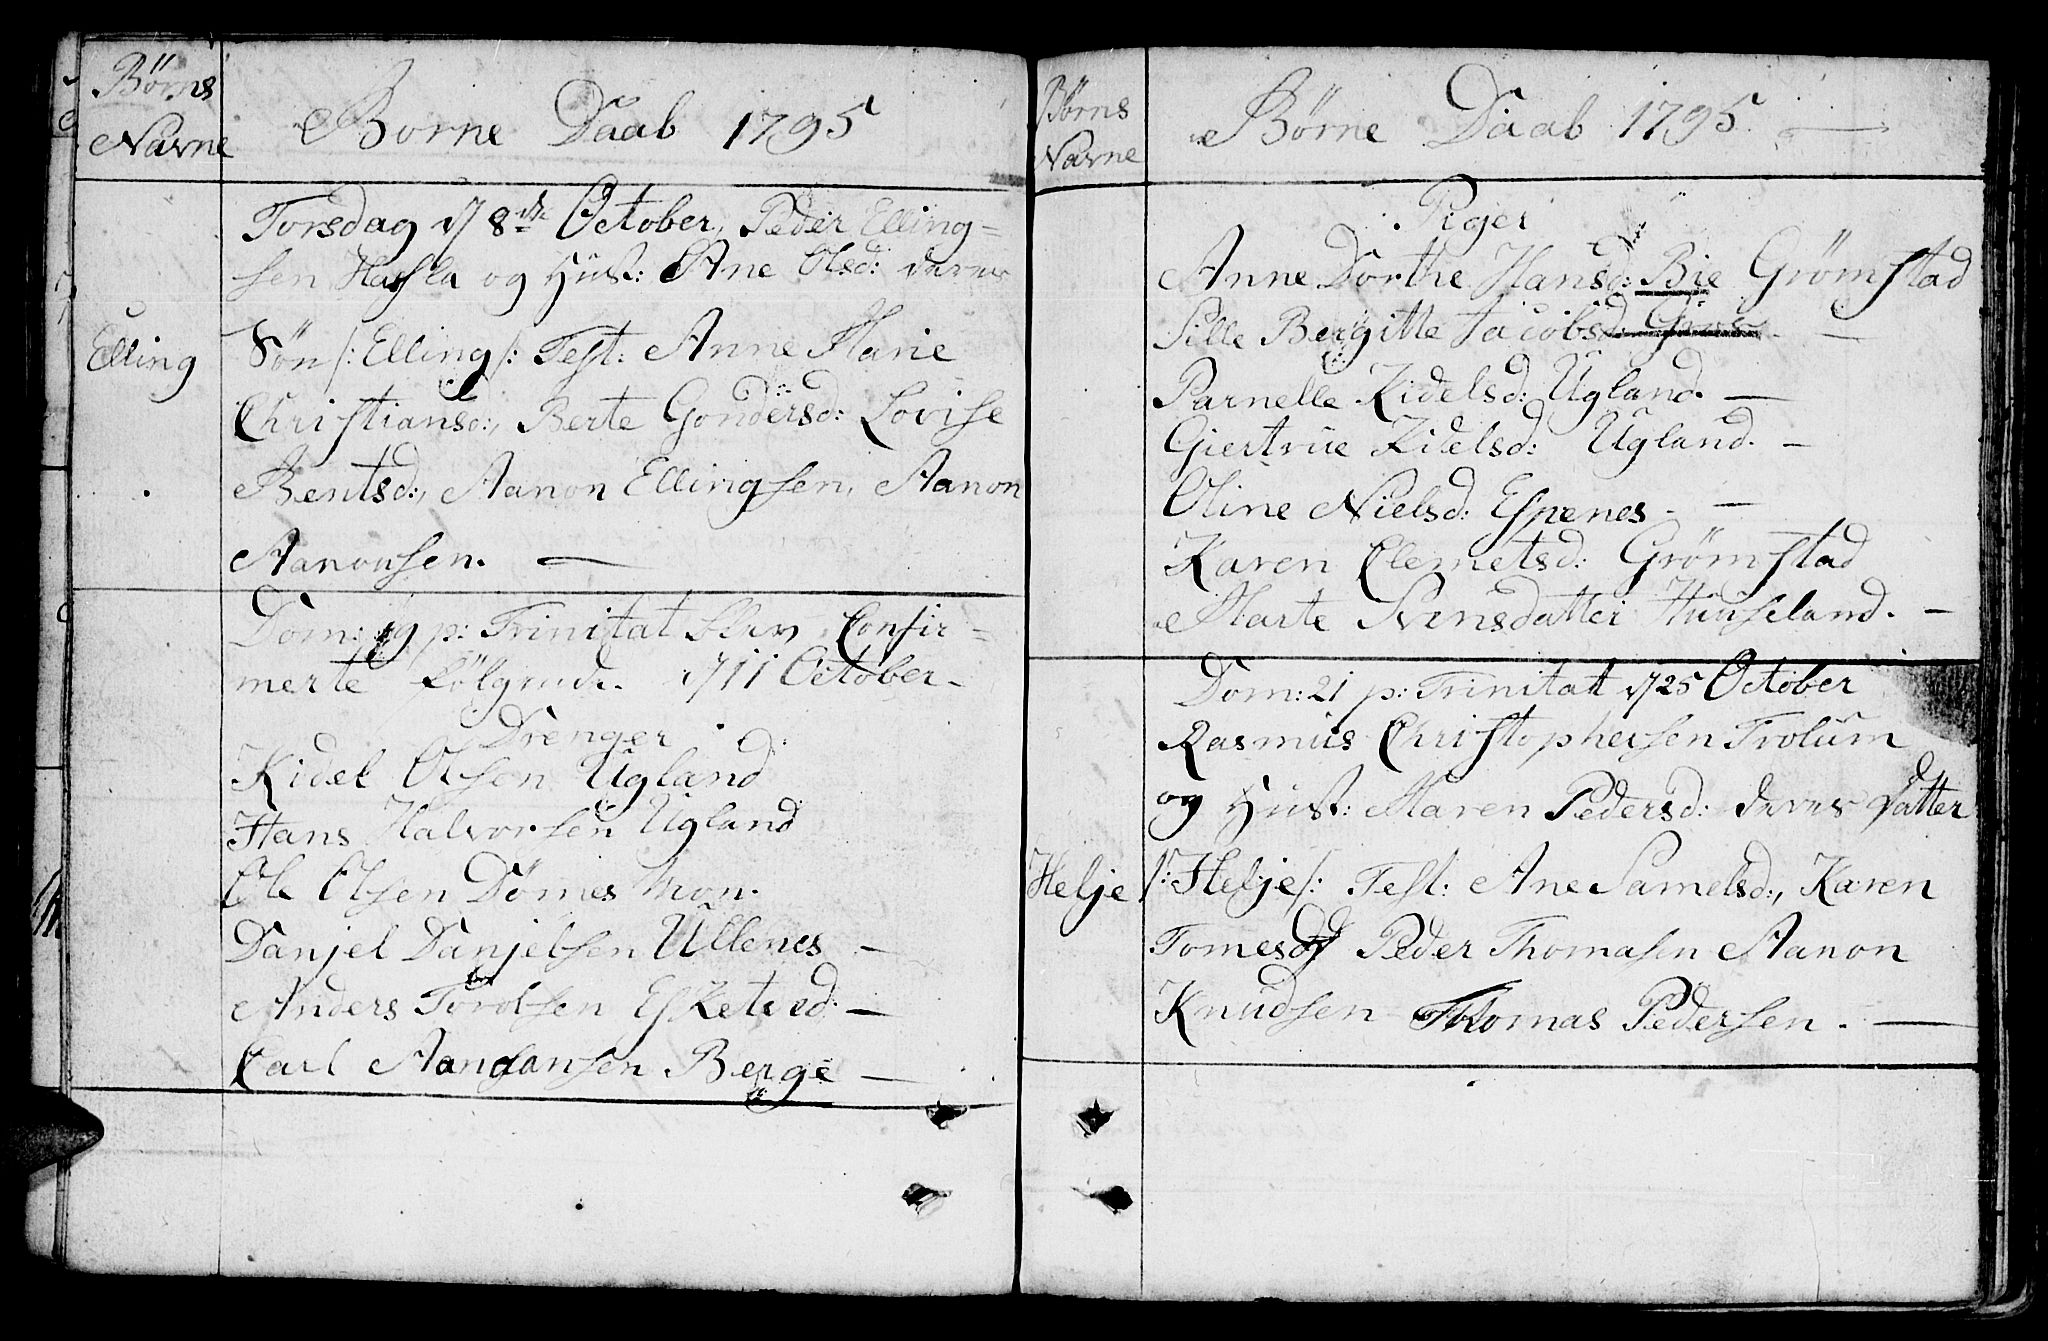 Börns
Navne
Borne Daab 1795
Torsdag d 8de October, Peder Elling=
sen Hasla og Hust: Ane Olsd: deres
Elling
Sön /: Elling /: Test: Anne Marie
Christiansd:, Berte Gondersd: Lovise
Bentsd:, Aanon Ellingsen, Aanon
Aanonsen. —
Dom: 19 p: Trinitat blev Confir=
merte følgende. d 11 October.
Drenger
Kidel Olsen Ugland
Hans Halvorsen Ugland
Ole Olsen Dömes Mon.
Danjel Danjelsen Ullenes —
Anders Torolsen Esketved. —
Carl Aanonsen Berge —
Børns
Navne
Børne Daab 1795. —
Piger
Anne Dorthe Hansd: Bie Grömstad
Sille Bergitte Jacobsd: —
Parnelle Kidelsd: Ugland. —
Giertrue Kidelsd: Ugland. —
Oline Nielsd: Espenes. —
Karen Clemetsd: Grömstad
Marte Svensdatter Huuseland. —
Dom: 21 p: Trinitat d 25 October
Rasmus Christophersen Trolum
og Hust: Maren Pedersd: deres Datter
Helje
/: Helje /: Test: Ane Samelsd:, Karen
Tomesd Peder Thomasen Aanon
Knudsen Thomas Pedersen. —